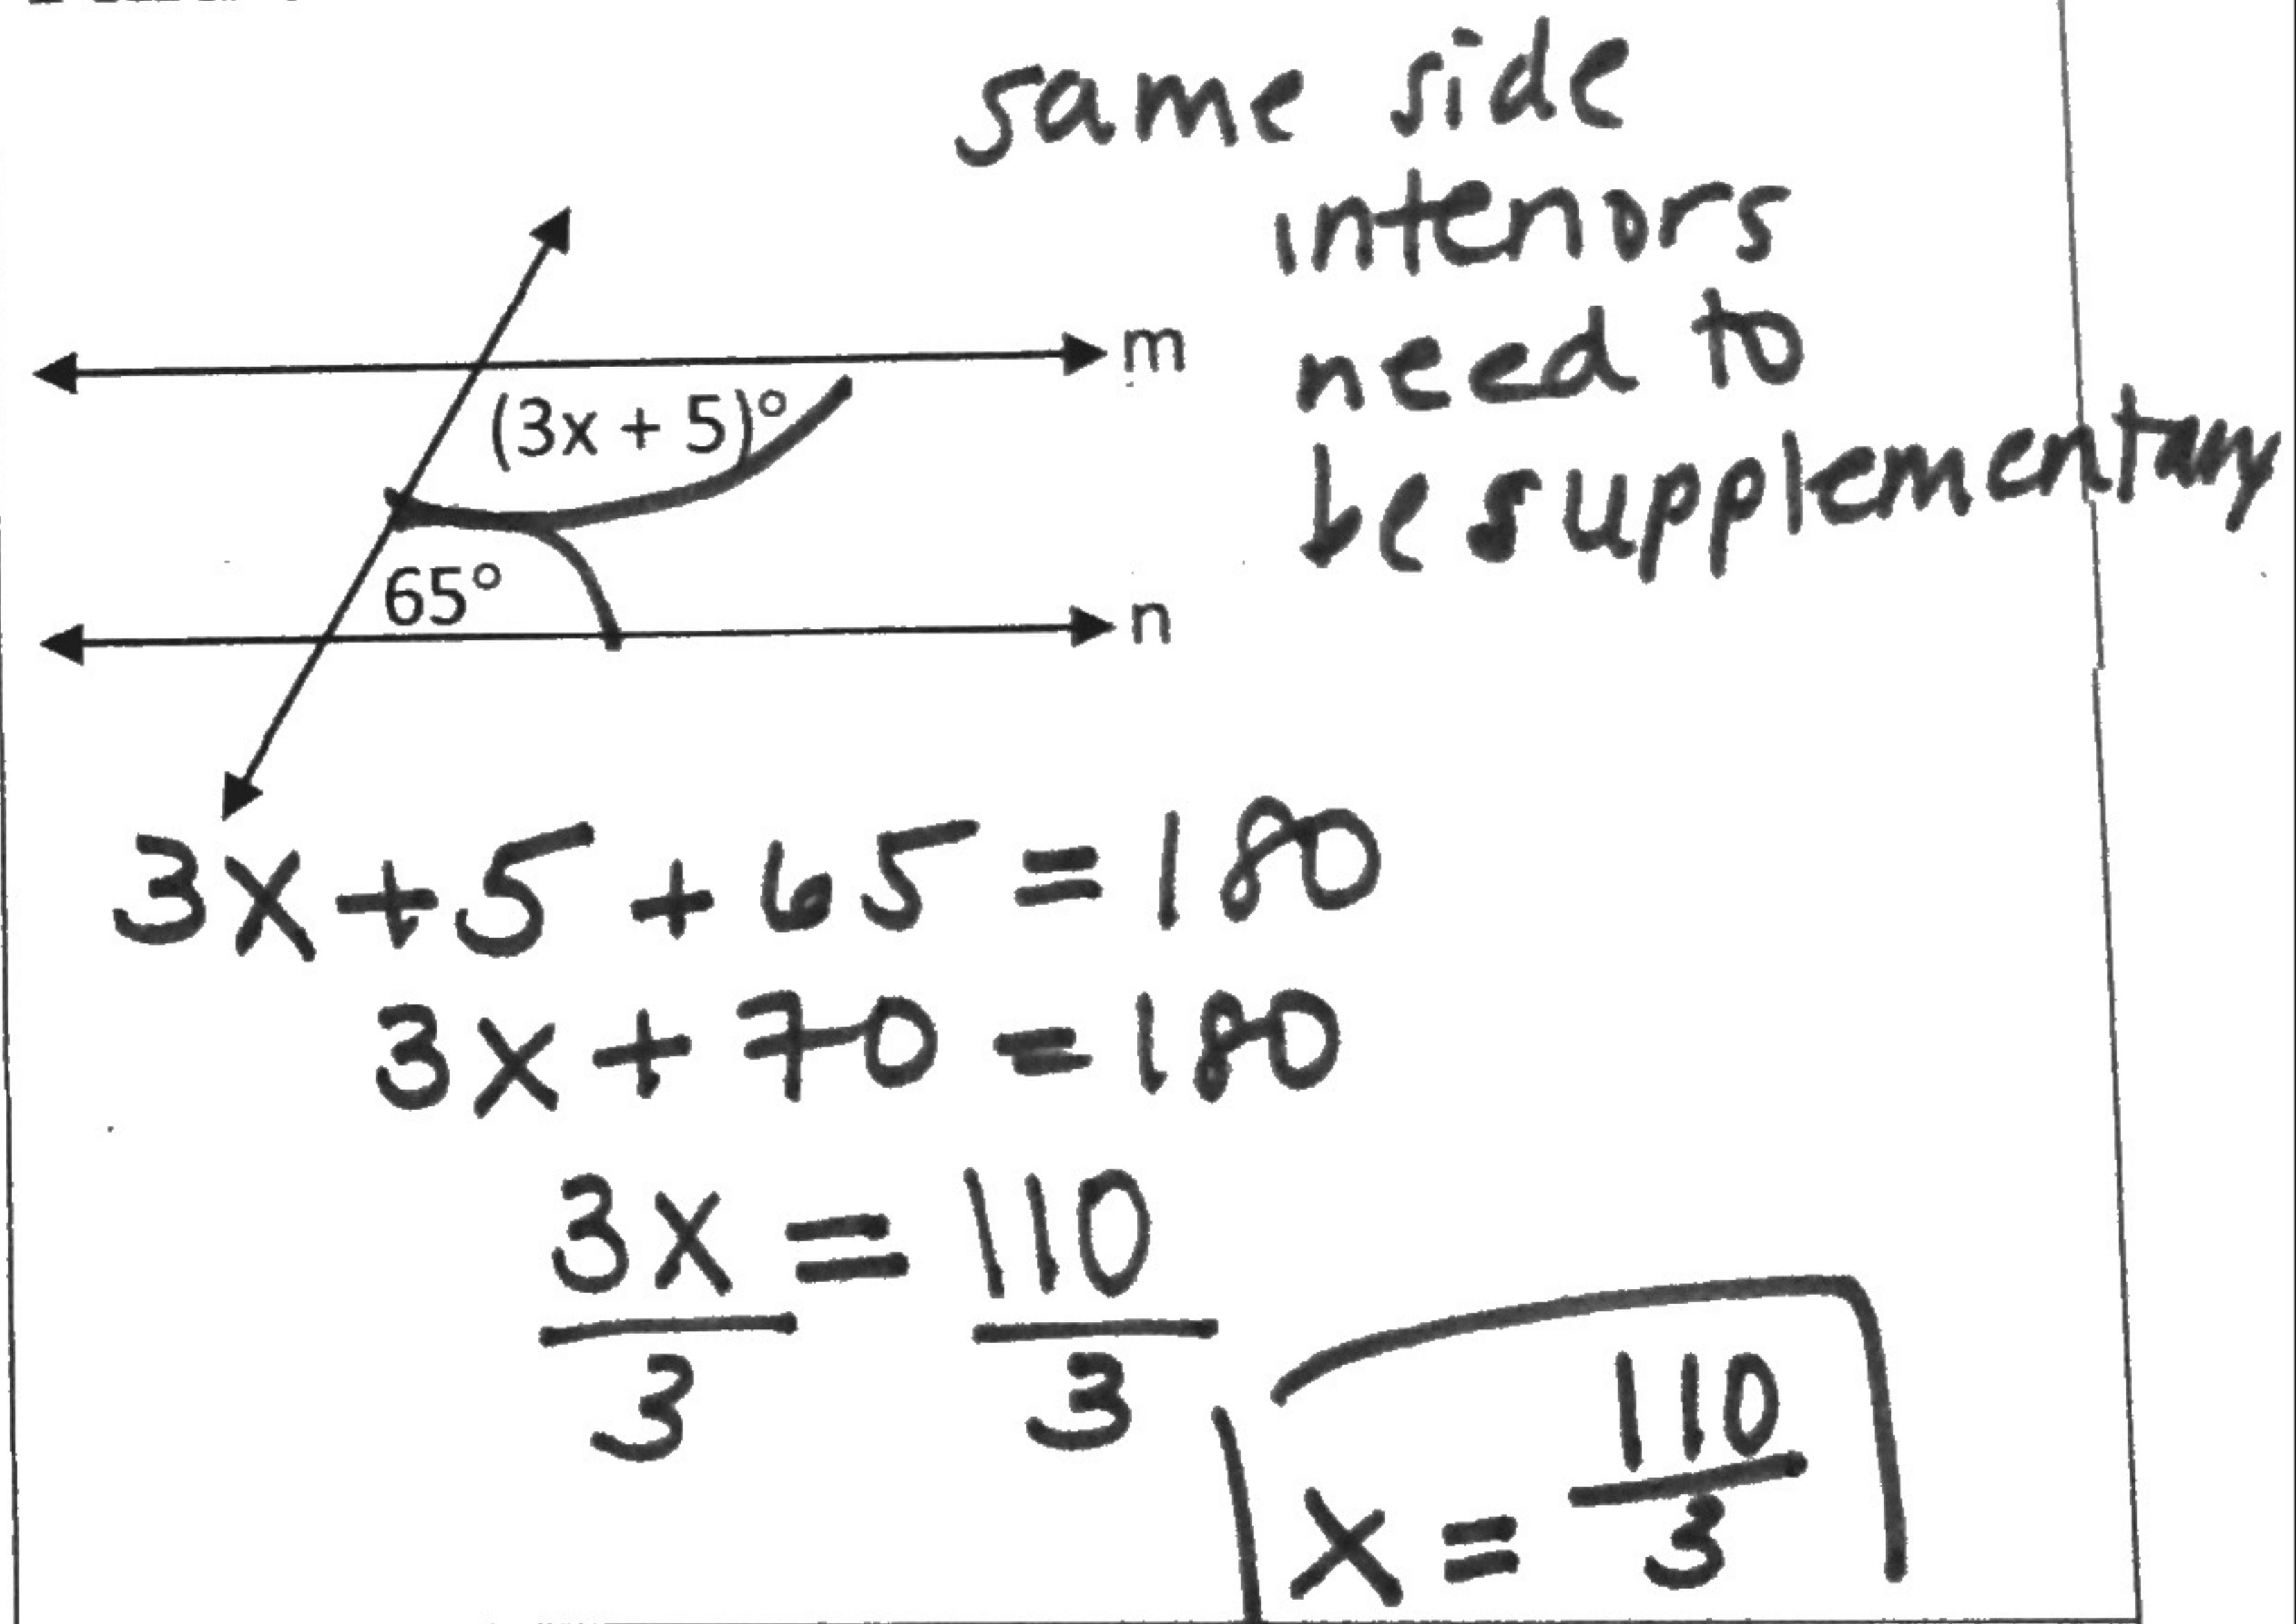 same side
interiors
need to
be supplementary
m
(3x + 5)°
65°
n
3x + 5 + 65 = 180
3x + 70 = 180
3x = 110
3 3
x = 110
3